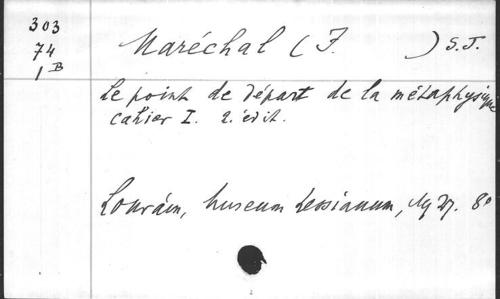 303
74
1 B
Maréchal (J. ) S.J.
Le point de départ de la métaphysique
cahier I. 2. édit.
Louvain, Museum Lessianum, 1927. 8°